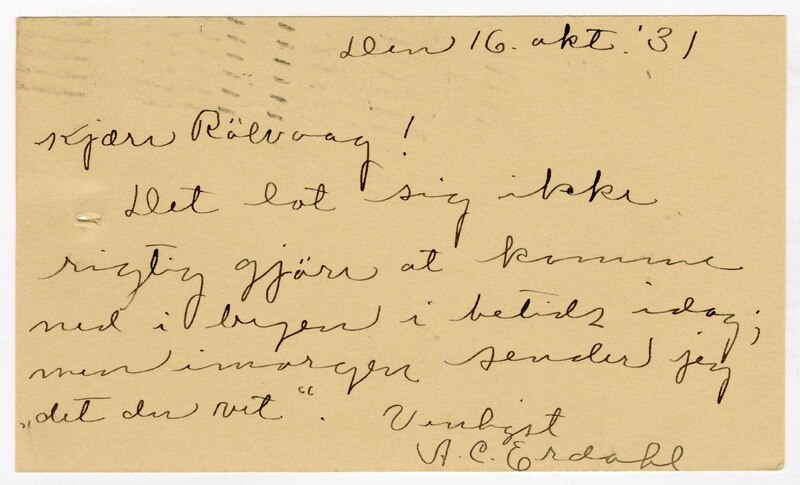 Den 16. okt. '31
Kjære Rölvaag!
Det lot sig ikke
rigtig gjöre at komme
ned i byen i betids idag;
men imorgen sender jeg
„det du vet“. Venligst
A. C. Erdahl